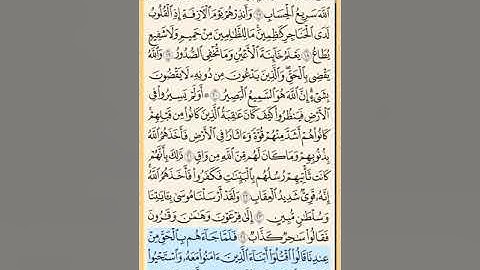 ٱللَّهَ سَرِيعُ ٱلْحِسَابِ ١٧ وَأَنذِرْهُمْ يَوْمَ ٱلْءَازِفَةِ إِذِ ٱلْقُلُوبُ
لَدَى ٱلْحَنَاجِرِ كَٰظِمِينَ مَا لِلظَّٰلِمِينَ مِنْ حَمِيمٍ وَلَا شَفِيعٍ
يُطَاعُ ١٨ يَعْلَمُ خَآئِنَةَ ٱلْأَعْيُنِ وَمَا تُخْفِى ٱلصُّدُورُ ١٩ وَٱللَّهُ
يَقْضِى بِٱلْحَقِّ وَٱلَّذِينَ يَدْعُونَ مِن دُونِهِۦ لَا يَقْضُونَ
بِشَىْءٍ إِنَّ ٱللَّهَ هُوَ ٱلسَّمِيعُ ٱلْبَصِيرُ ٢٠ ۞ أَوَلَمْ يَسِيرُوا۟ فِى
ٱلْأَرْضِ فَيَنظُرُوا۟ كَيْفَ كَانَ عَٰقِبَةُ ٱلَّذِينَ كَانُوا۟ مِن قَبْلِهِمْ
كَانُوا۟ هُمْ أَشَدَّ مِنْهُمْ قُوَّةً وَءَاثَارًا فِى ٱلْأَرْضِ فَأَخَذَهُمُ ٱللَّهُ
بِذُنُوبِهِمْ وَمَا كَانَ لَهُم مِّنَ ٱللَّهِ مِن وَاقٍ ٢١ ذَٰلِكَ بِأَنَّهُمْ
كَانَت تَّأْتِيهِمْ رُسُلُهُم بِٱلْبَيِّنَٰتِ فَكَفَرُوا۟ فَأَخَذَهُمُ ٱللَّهُ
إِنَّهُۥ قَوِىٌّ شَدِيدُ ٱلْعِقَابِ ٢٢ وَلَقَدْ أَرْسَلْنَا مُوسَىٰ بِـَٔايَٰتِنَا
وَسُلْطَٰنٍ مُّبِينٍ ٢٣ إِلَىٰ فِرْعَوْنَ وَهَٰمَٰنَ وَقَٰرُونَ
فَقَالُوا۟ سَٰحِرٌ كَذَّابٌ ٢٤ فَلَمَّا جَآءَهُم بِٱلْحَقِّ مِنْ
عِندِنَا قَالُوا۟ ٱقْتُلُوٓا۟ أَبْنَآءَ ٱلَّذِينَ ءَامَنُوا۟ مَعَهُۥ وَٱسْتَحْيُوا۟